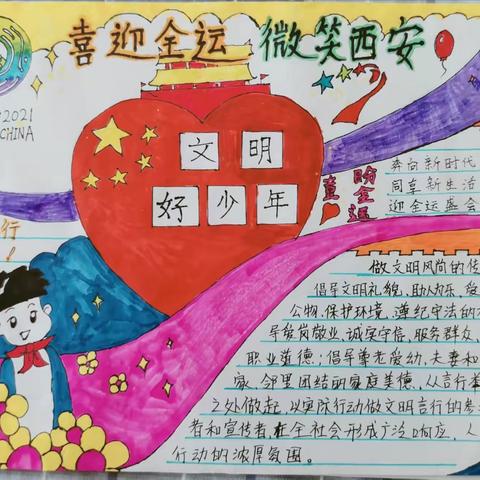 喜迎全运 微笑西安
2021
CHINA
文明
好少年
童
盼全运
奔向新时代
同享新生活
迎全运盛会
行
做文明风尚的传
倡导文明礼貌,助人为乐,爱
公物,保护环境,遵纪守法的
导爱岗敬业,诚实守信,服务群众,
职业道德;倡导尊老爱幼,夫妻和
家,邻里团结的家庭美德,从言行
之处做起,以实际行动做文明言行的参
者和宣传者,在全社会形成广泛响应,人
行动的浓厚氛围。